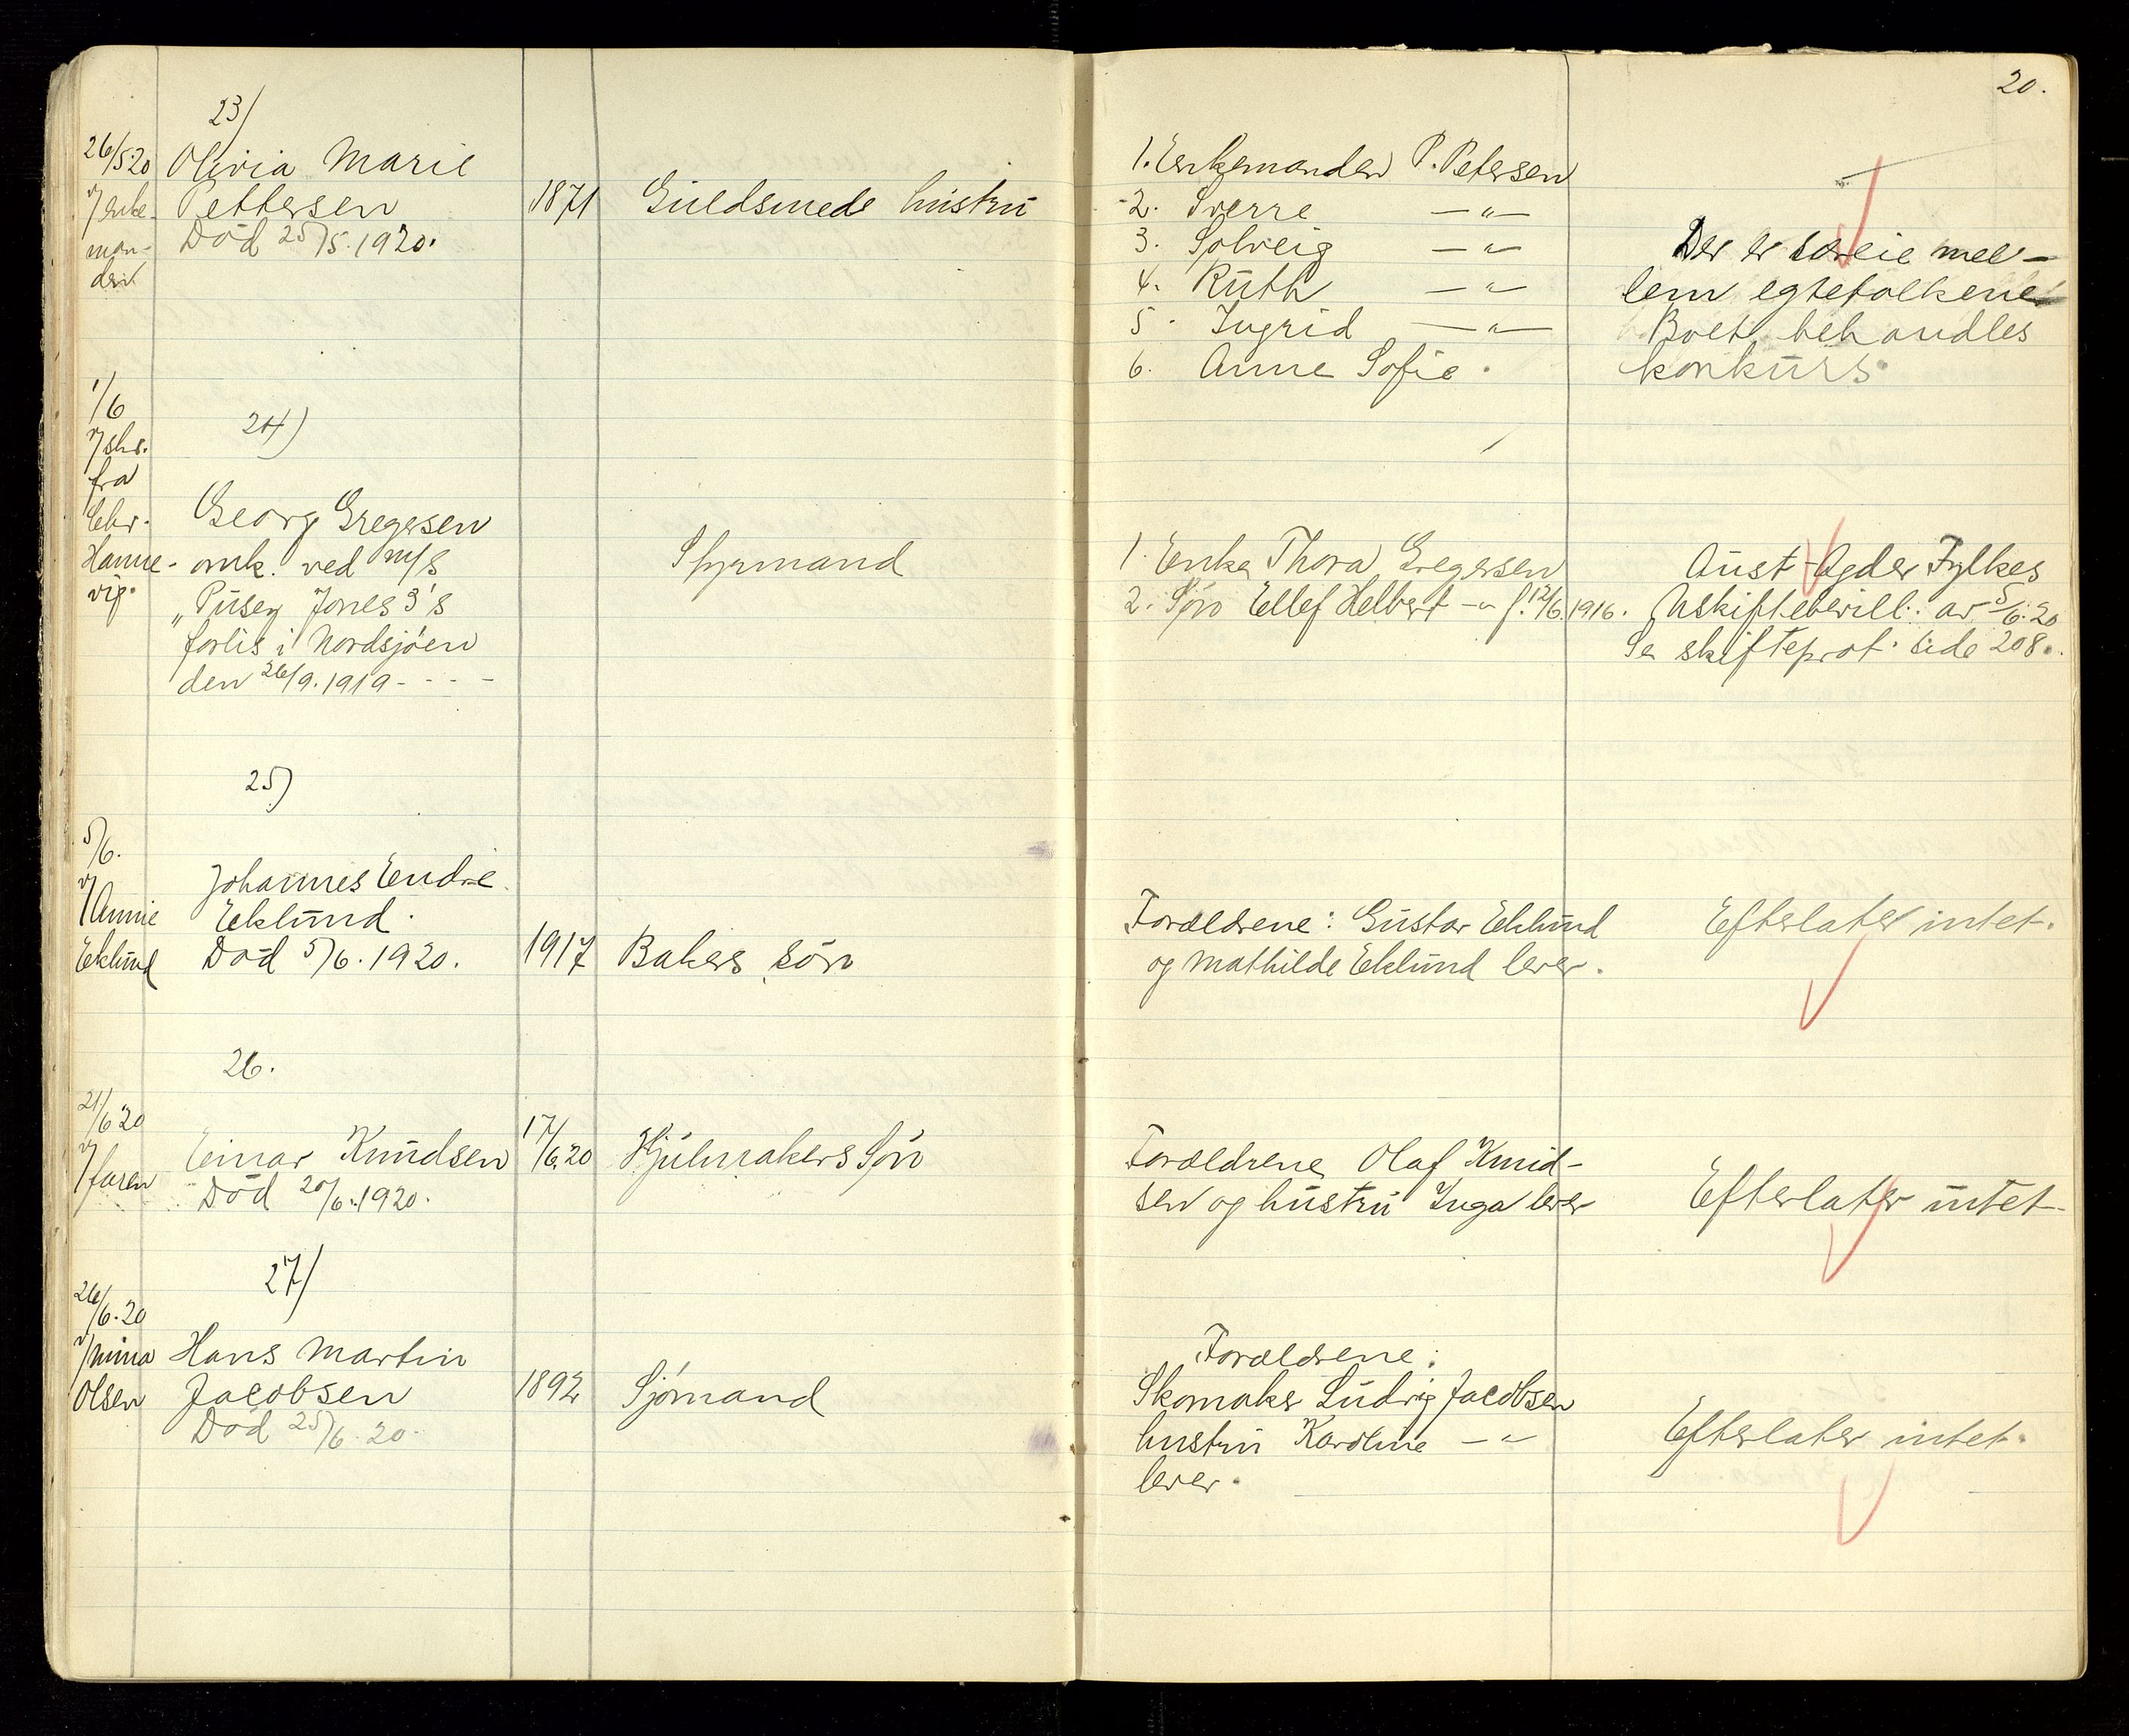 20.
23)
26/5.20
v/enke-
man-
den
Olivia Marie
Pettersen
Död 25/5.1920.
1871
Guldsmeds hustru
1. Enkemanden P. Petersen
2. Sverre —"—
3. Solveig —"—
4. Ruth —"—
5. Ingrid —"—
6. Anne Sofie.
Der er særeie mel-
lem egtefolkene
Boet behandles
konkurs.
24)
1/6
v/skr.
fra
Chr.
Hanne-
vig.
Georg Gregersen
omk. ved m/s
"Pusey Jones 3's
forlis i Nordsjöen
den 26/9.1919 - - - -
Styrmand
1. Enke Thora Gregersen
2. Sön Ellef Helbert —"— f. 12/6.1916.
Aust-Agder Fylkes
Uskiftebevill. av 5/6.20
Se skifteprot. side 208.
25)
5/6.
v/Annie
Eklund
Johannes Endre
Eklund.
Död 5/6.1920.
1917
Bakers sön
Forældrene: Gustav Eklund
og Mathilde Eklund lever.
Efterlater intet.
26.
21/6 20
v/faren
Einar Knudsen
Död 20/6.1920.
17/6.20
Hjulmakers Sön
Forældrene Olaf Knud-
sen og hustru Inga lever
Efterlater intet
27/
26/6.20
v/Mina
Olsen
Hans Martin
Jacobsen
Död 25/6.20
1892
Sjömand
Forældrene:
Skomaker Ludvig Jacobsen
hustru Karoline —"—
lever.
Efterlater intet.